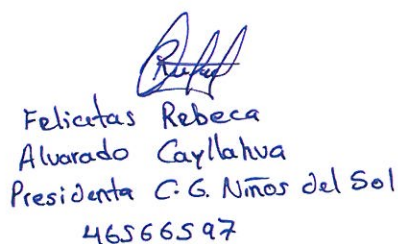 Felicitas Rebeca
Alvarado Cayllahua
Presidenta C.G. Niños del Sol
46566597